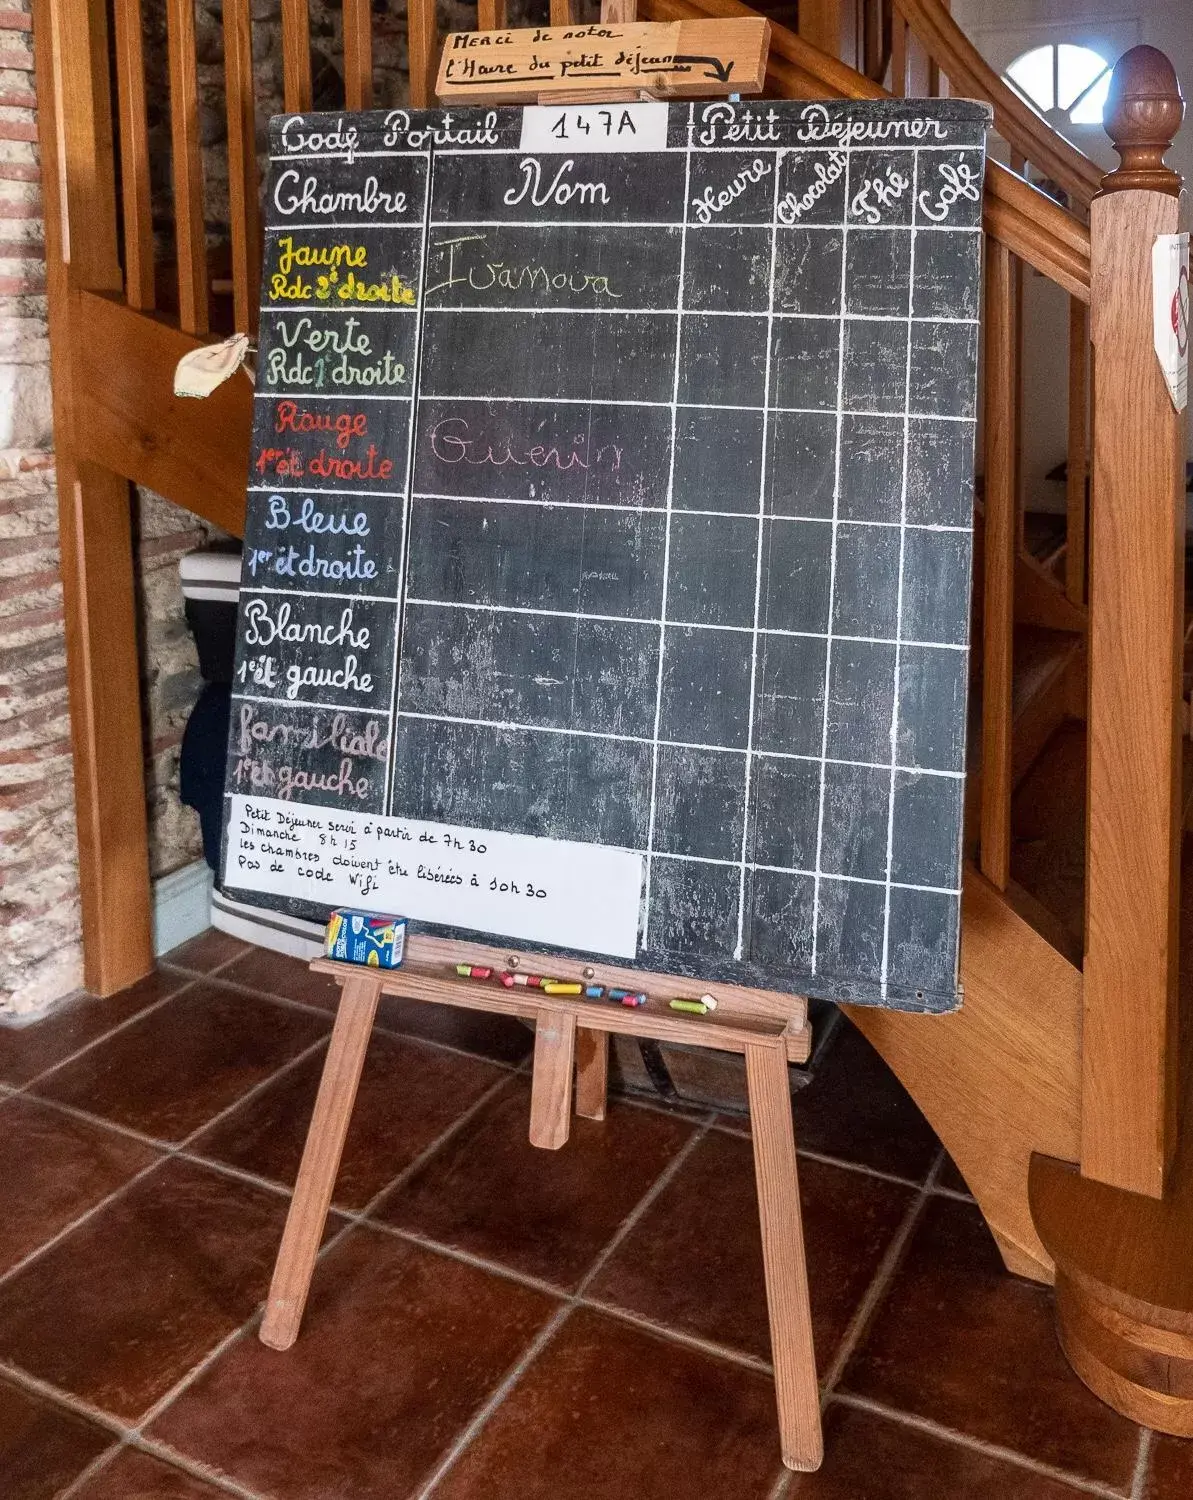 Merci de noter
l'Heure du petit déjeuner
Code Portail 147A Petit Déjeuner
Chambre Nom Heure Chocolat Thé Café
Jaune
Rdc 2e droite
Ivanova
Verte
Rdc 1e droite
Rouge
1er ét droite
Guerin
Bleue
1er ét droite
Blanche
1er ét gauche
familiale
1er ét gauche
Petit Déjeuner servi à partir de 7h30
Dimanche 8h15
les chambres doivent être libérées à 10h30
Pas de code Wifi